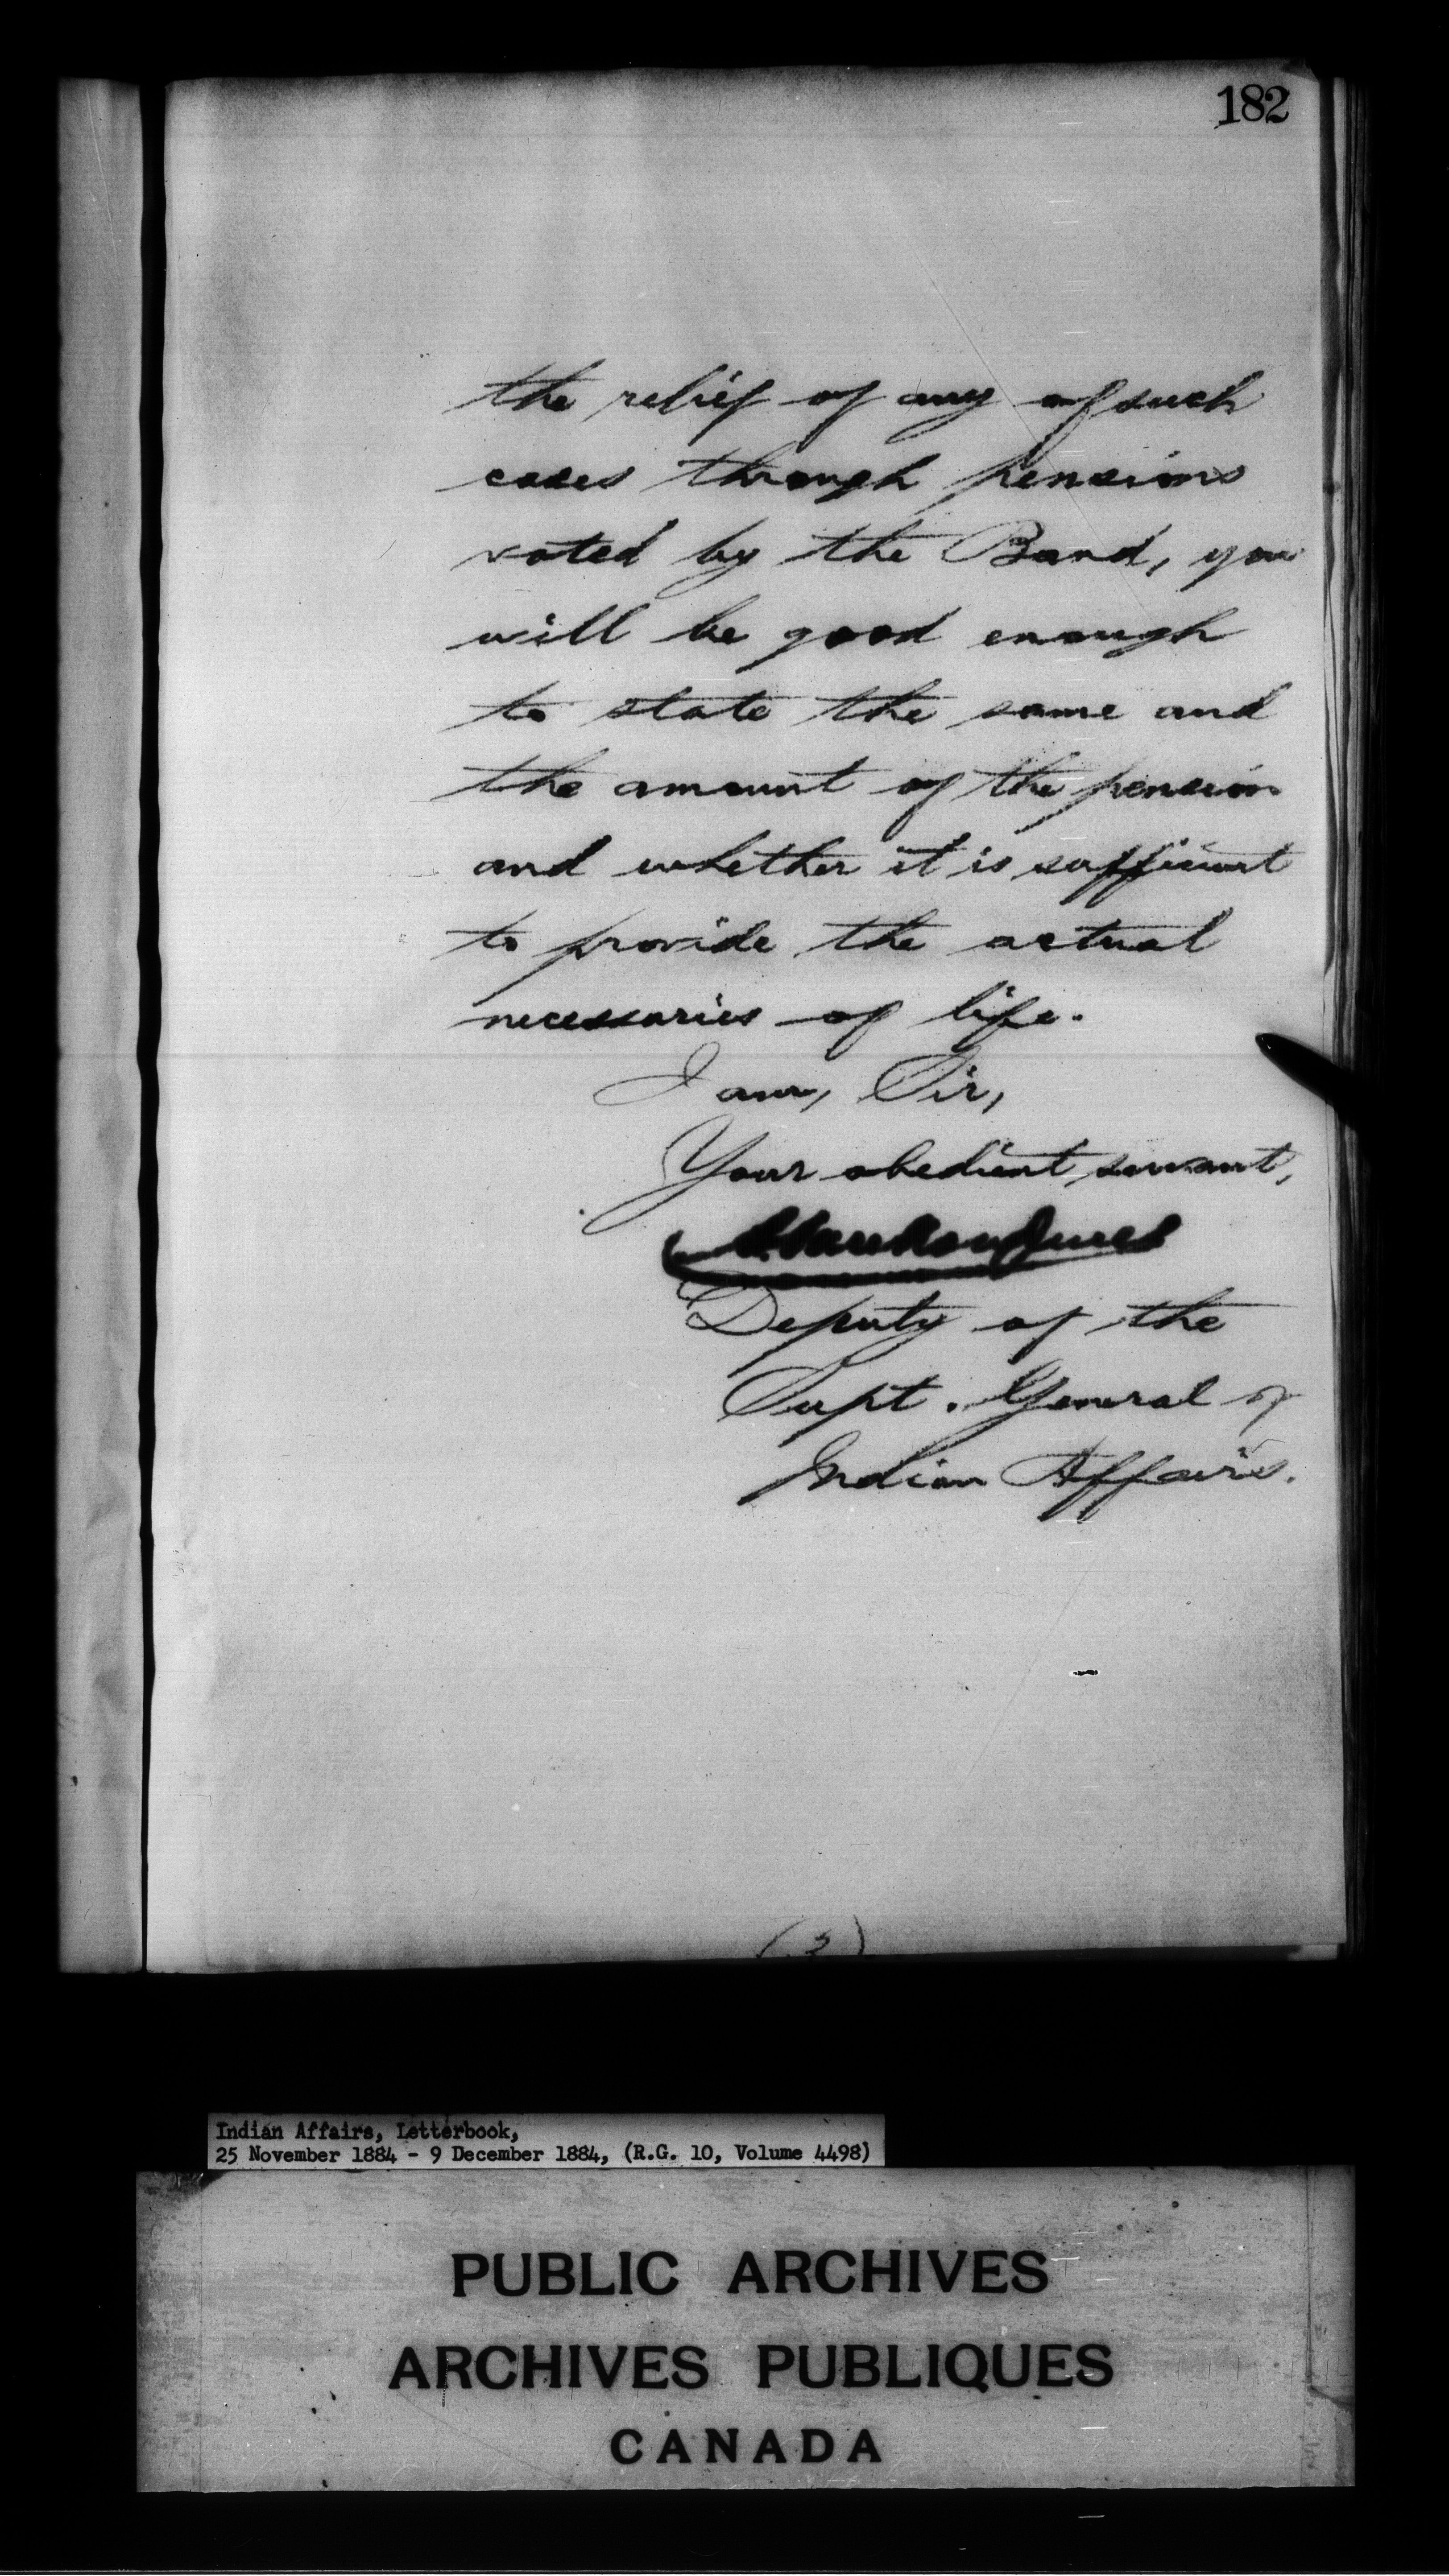 182
the relief of any of such
cases through pensions
voted by the Band, you
will be good enough
to state the same and
the amount of the pension
and whether it is sufficient
to provide the actual
necessaries of life.
I am, Sir,
Your obedient servant,
Deputy of the
Supt. General of
Indian Affairs.
(3)
Indian Affairs, Letterbook,
25 November 1884 - 9 December 1884, (R.G. 10, Volume 4498)
PUBLIC ARCHIVES
ARCHIVES PUBLIQUES
CANADA